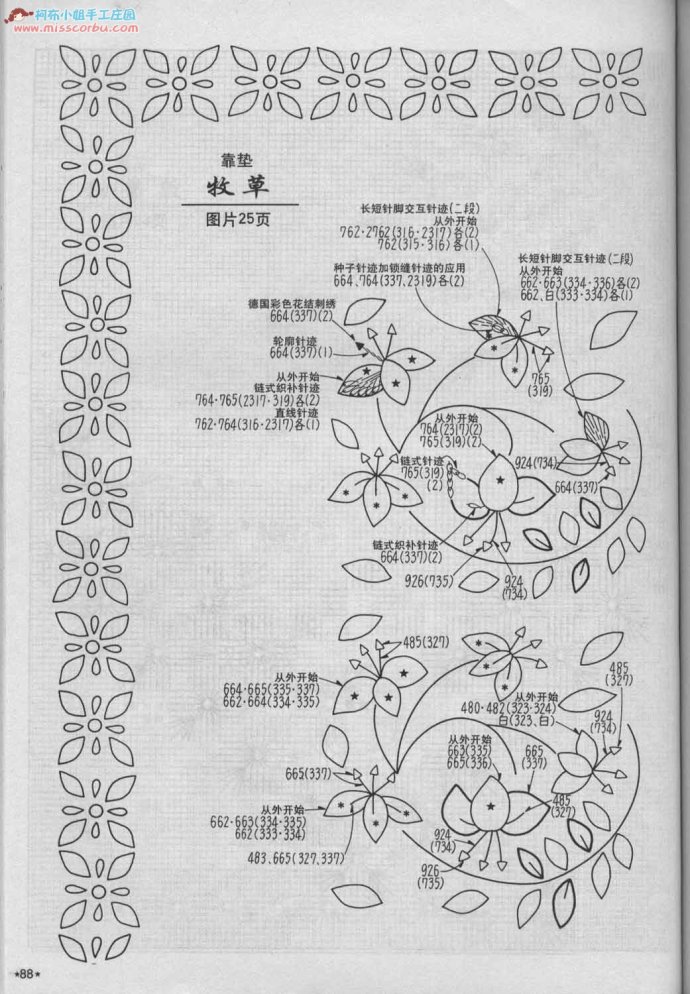 柯布小姐手工庄园
www.misscorbu.com
靠垫
牧草
图片25页
长短针脚交互针迹(二段)
从外开始
762·2762(316·2317)各(2)
762(315·316)各(1)
种子针迹加锁缝针迹的应用
664、764(337、2319)各(2)
长短针脚交互针迹(二段)
从外开始
662·663(334·336)各(2)
662、白(333·334)各(1)
德国彩色花结刺绣
664(337)(2)
轮廓针迹
664(337)(1)
从外开始
链式织补针迹
764·765(2317·319)各(2)
直线针迹
762·764(316·2317)各(1)
765
(319)
从外开始
764(2317)(2)
765(319)(2)
链式针迹
765(319)
(2)
924(734)
664(337)
链式织补针迹
664(337)(2)
926(735)
924
(734)
485(327)
从外开始
664·665(335·337)
662·664(334·335)
485
(327)
从外开始
480·482(323·324)
白(323、白)
924
(734)
从外开始
663(335)
665(336)
665
(337)
665(337)
485
(327)
从外开始
662·663(334·335)
662(333·334)
483、665(327、337)
924
(734)
926
(735)
★88★